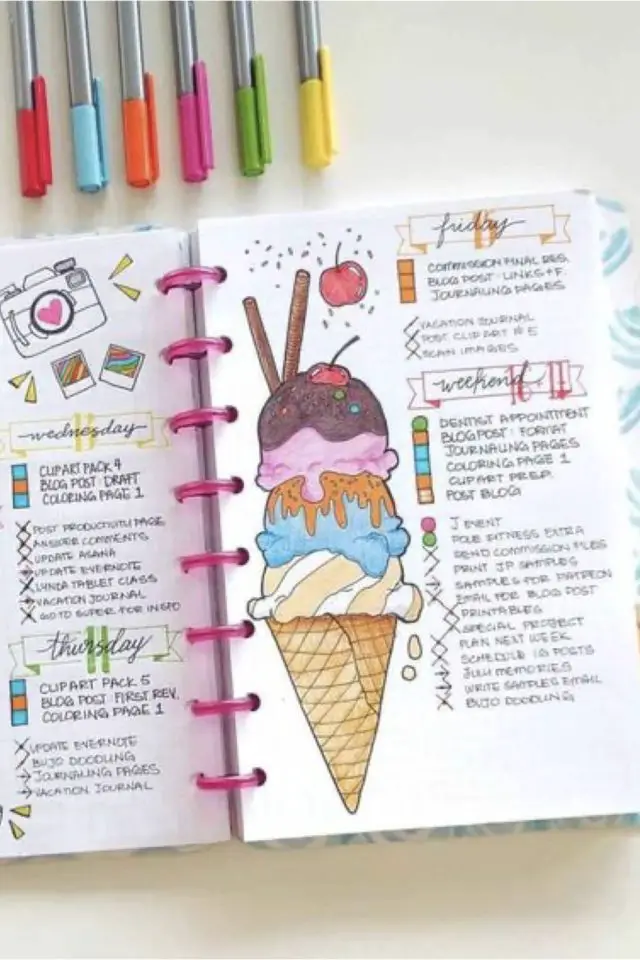 wednesday
CLIPART PACK 4
BLOG POST: DRAFT
COLORING PAGE 1
POST PRODUCTIVITY PAGE
ANSWER COMMENTS
UPDATE ASANA
UPDATE EVERNOTE
LYNDA TABLET CLASS
VACATION JOURNAL
GO TO SUPER FOR INSPO
thursday
11
CLIPART PACK 5
BLOG POST: FIRST REV.
COLORING PAGE 1
UPDATE EVERNOTE
BUJO DOODLING
JOURNALING PAGES
VACATION JOURNAL
friday
COMMISSION FINAL RES.
BLOG POST: LINKS + F.
JOURNALING PAGES
VACATION JOURNAL
POST CLIPART # 5
SCAN IMAGES
weekend
DENTIST APPOINTMENT
BLOG POST: FORMAT
JOURNALING PAGES
COLORING PAGE 1
CLIPART PREP.
POST BLOG
J EVENT
POLE FITNESS EXTRA
SEND COMMISSION FILES
PRINT JP SAMPLES
SAMPLES FOR PATREON
EMAIL FOR BLOG POST
PRINTABLES
SPECIAL PROJECT
PLAN NEXT WEEK
SCHEDULE IG POSTS
JULY MEMORIES
WRITE SAMPLES EMAIL
BUJO DOODLING